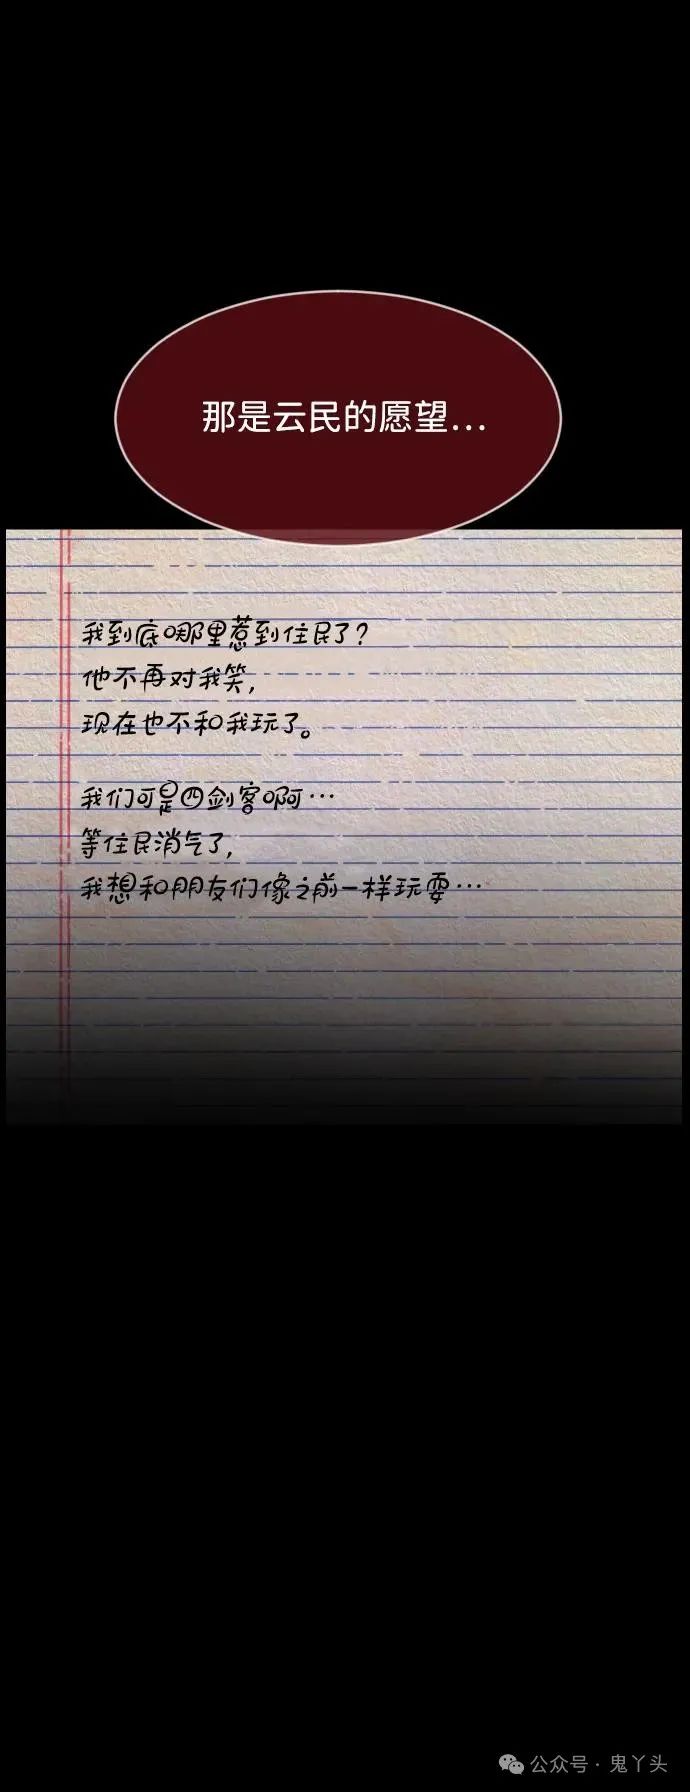 那是云民的愿望...
我到底哪里惹到住民了?
他不再对我笑,
现在也不和我玩了。
我们可是四剑客啊…
等住民消气了,
我想和朋友们像之前一样玩耍…
公众号·鬼丫头